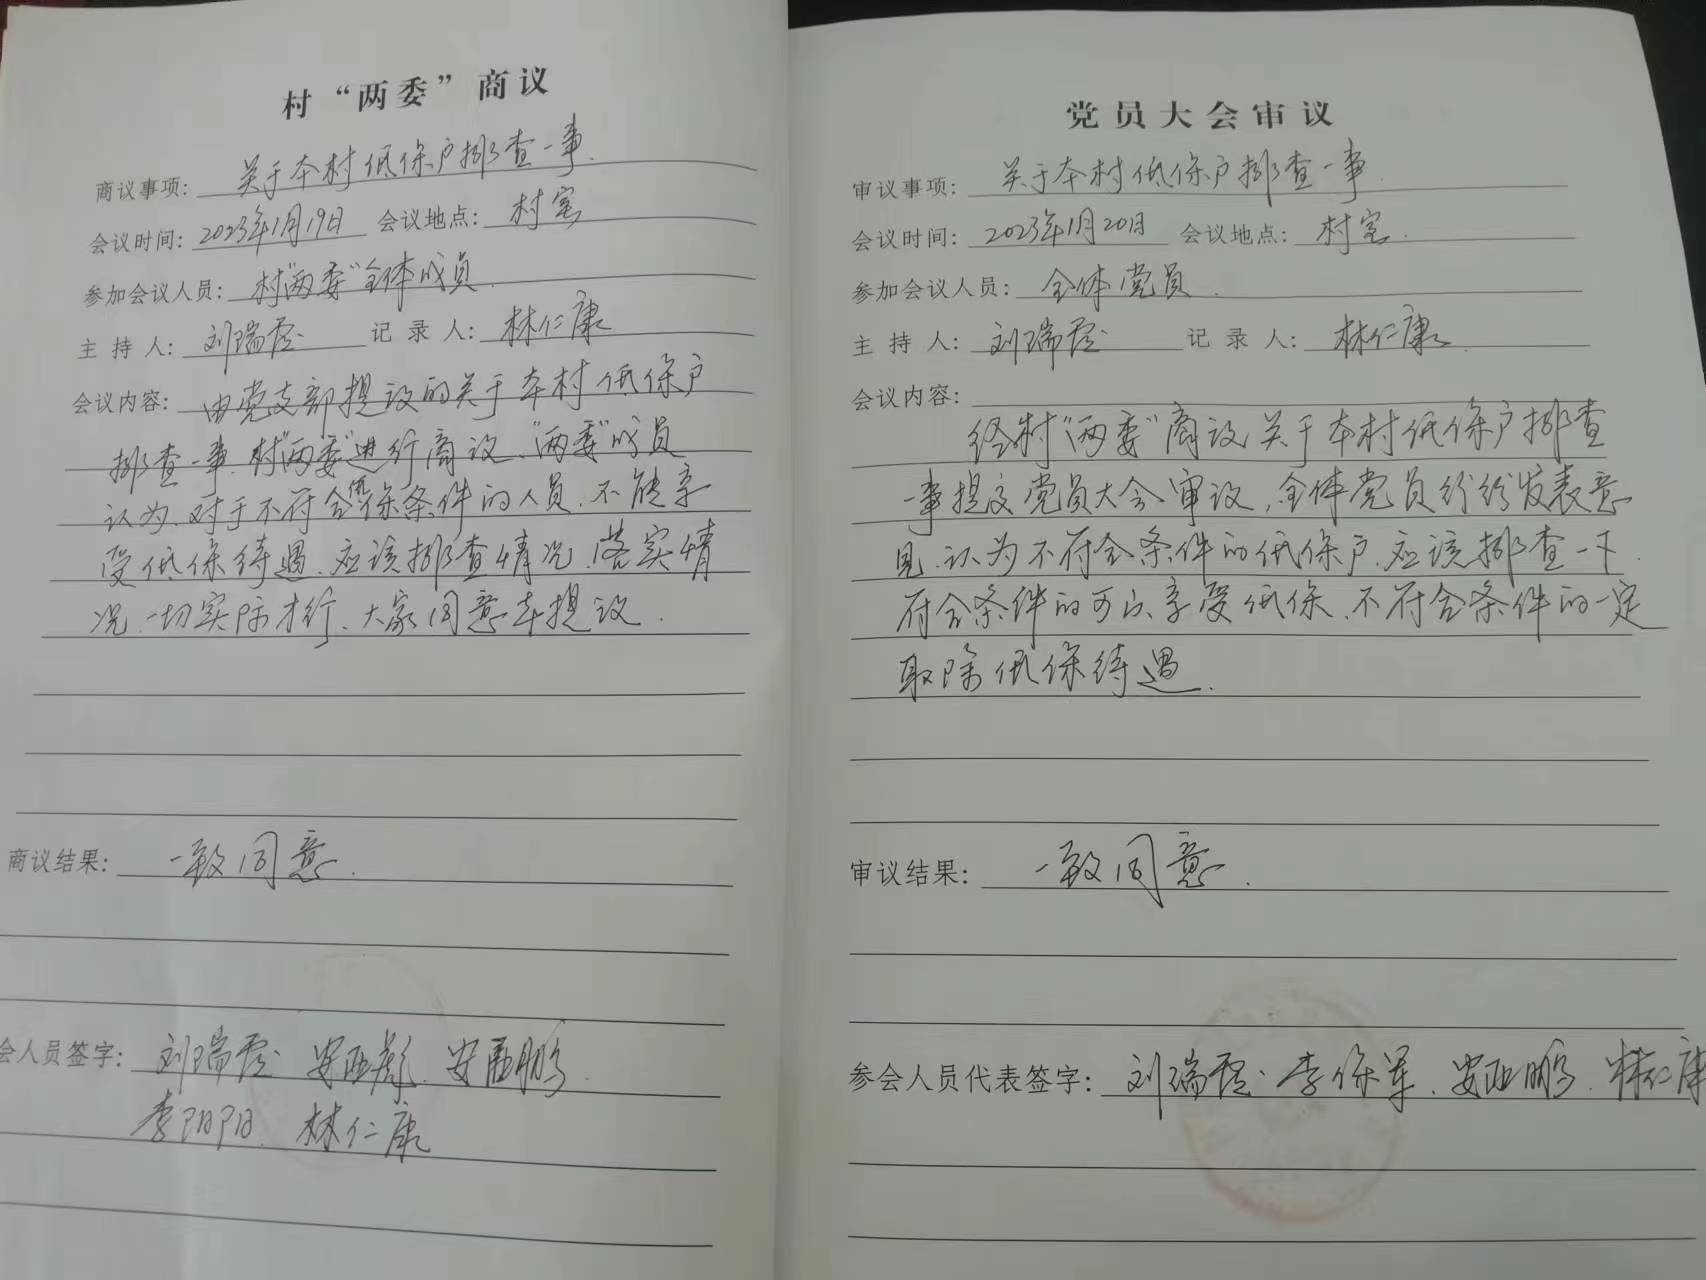 村“两委”商议
商议事项：关于本村低保户排查一事.
会议时间：2023年1月19日 会议地点：村室
参加会议人员：村“两委”全体成员
主持人：刘瑞霞 记录人：林仁康
会议内容：由党支部提议的关于本村低保户
排查一事、村“两委”进行商议、“两委”成员
认为、对于不符合低保条件的人员、不能享
受低保待遇、应该排查情况、落实情
况、一切实际才行、大家同意本提议.
商议结果：一致同意.
会人员签字：刘瑞霞 安亚彪、安亚鹏.
李阳阳、林仁康
党员大会审议
审议事项：关于本村低保户排查一事.
会议时间：2023年1月20日 会议地点：村室.
参加会议人员：全体党员.
主持人：刘瑞霞 记录人：林仁康.
会议内容：
经村“两委”商议关于本村低保户排查
一事提交党员大会审议，全体党员纷纷发表意
见、认为不符合条件的低保户、应该排查一下.
符合条件的可以享受低保、不符合条件的一定
取除低保待遇.
审议结果：一致同意.
参会人员代表签字：刘瑞霞 李保军、安亚鹏、林仁康